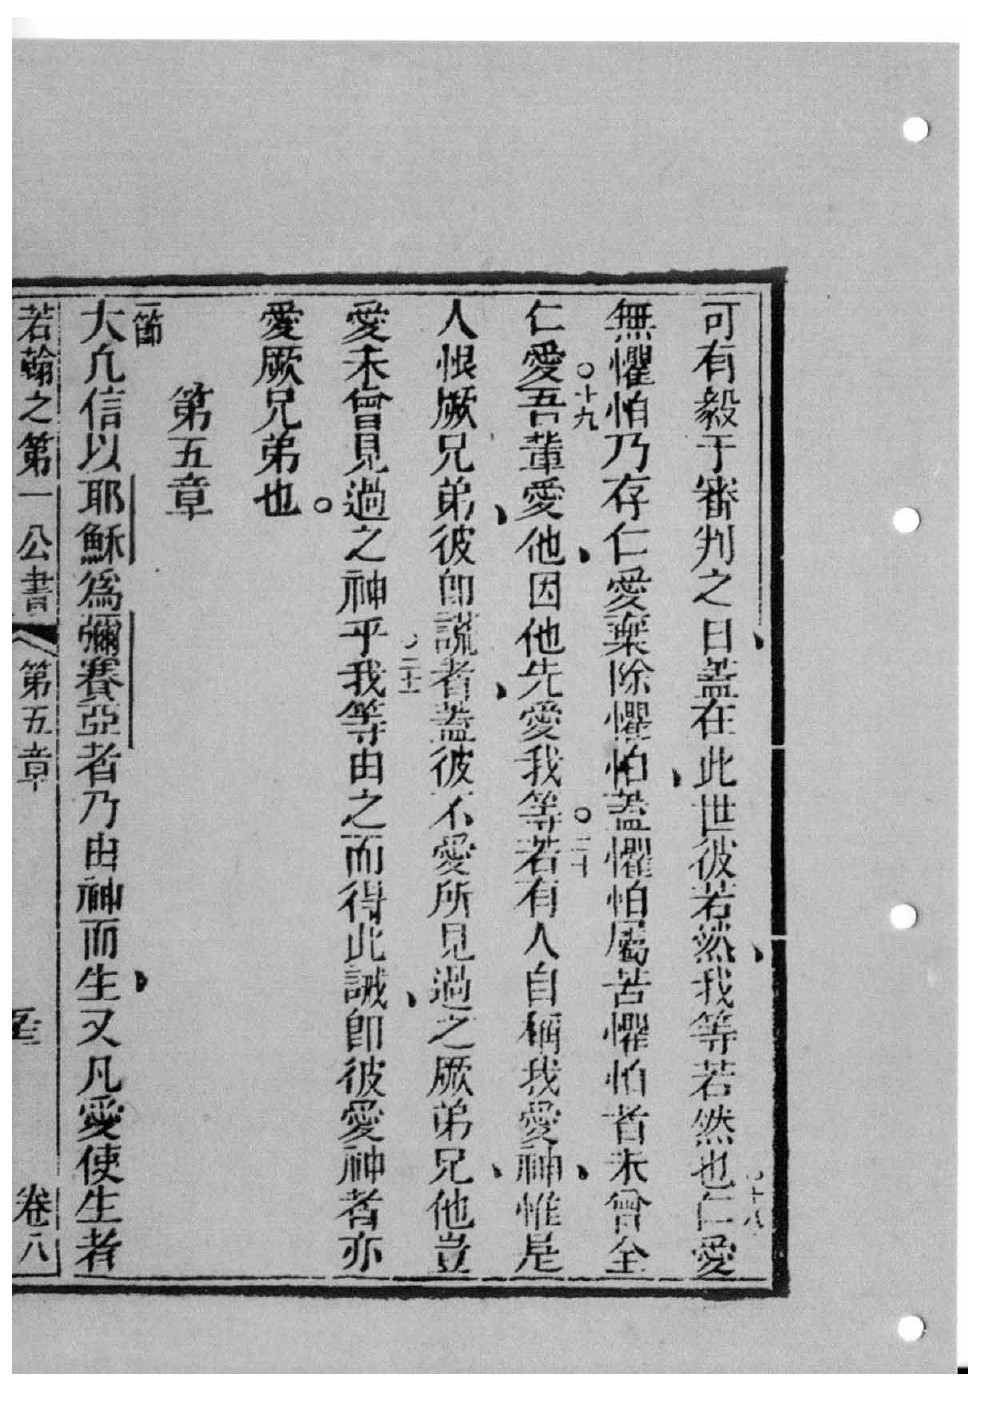 可有毅于審判之日蓋在此世彼若然我等若然也十八仁愛
無懼怕乃存仁愛棄除懼怕蓋懼怕屬苦懼怕者未曾全
仁愛。十九吾輩愛他因他先愛我等。二十若有人自稱我愛神惟是
人恨厥兄弟彼卽謊者蓋彼不愛所見過之厥弟兄他豈
愛未曾見過之神乎二十一我等由之而得此誡卽彼愛神者亦
愛厥兄弟也。
第五章
一節大凡信以耶穌為彌賽亞者乃由神而生又凡愛使生者
若翰之第一公書 第五章 卷八